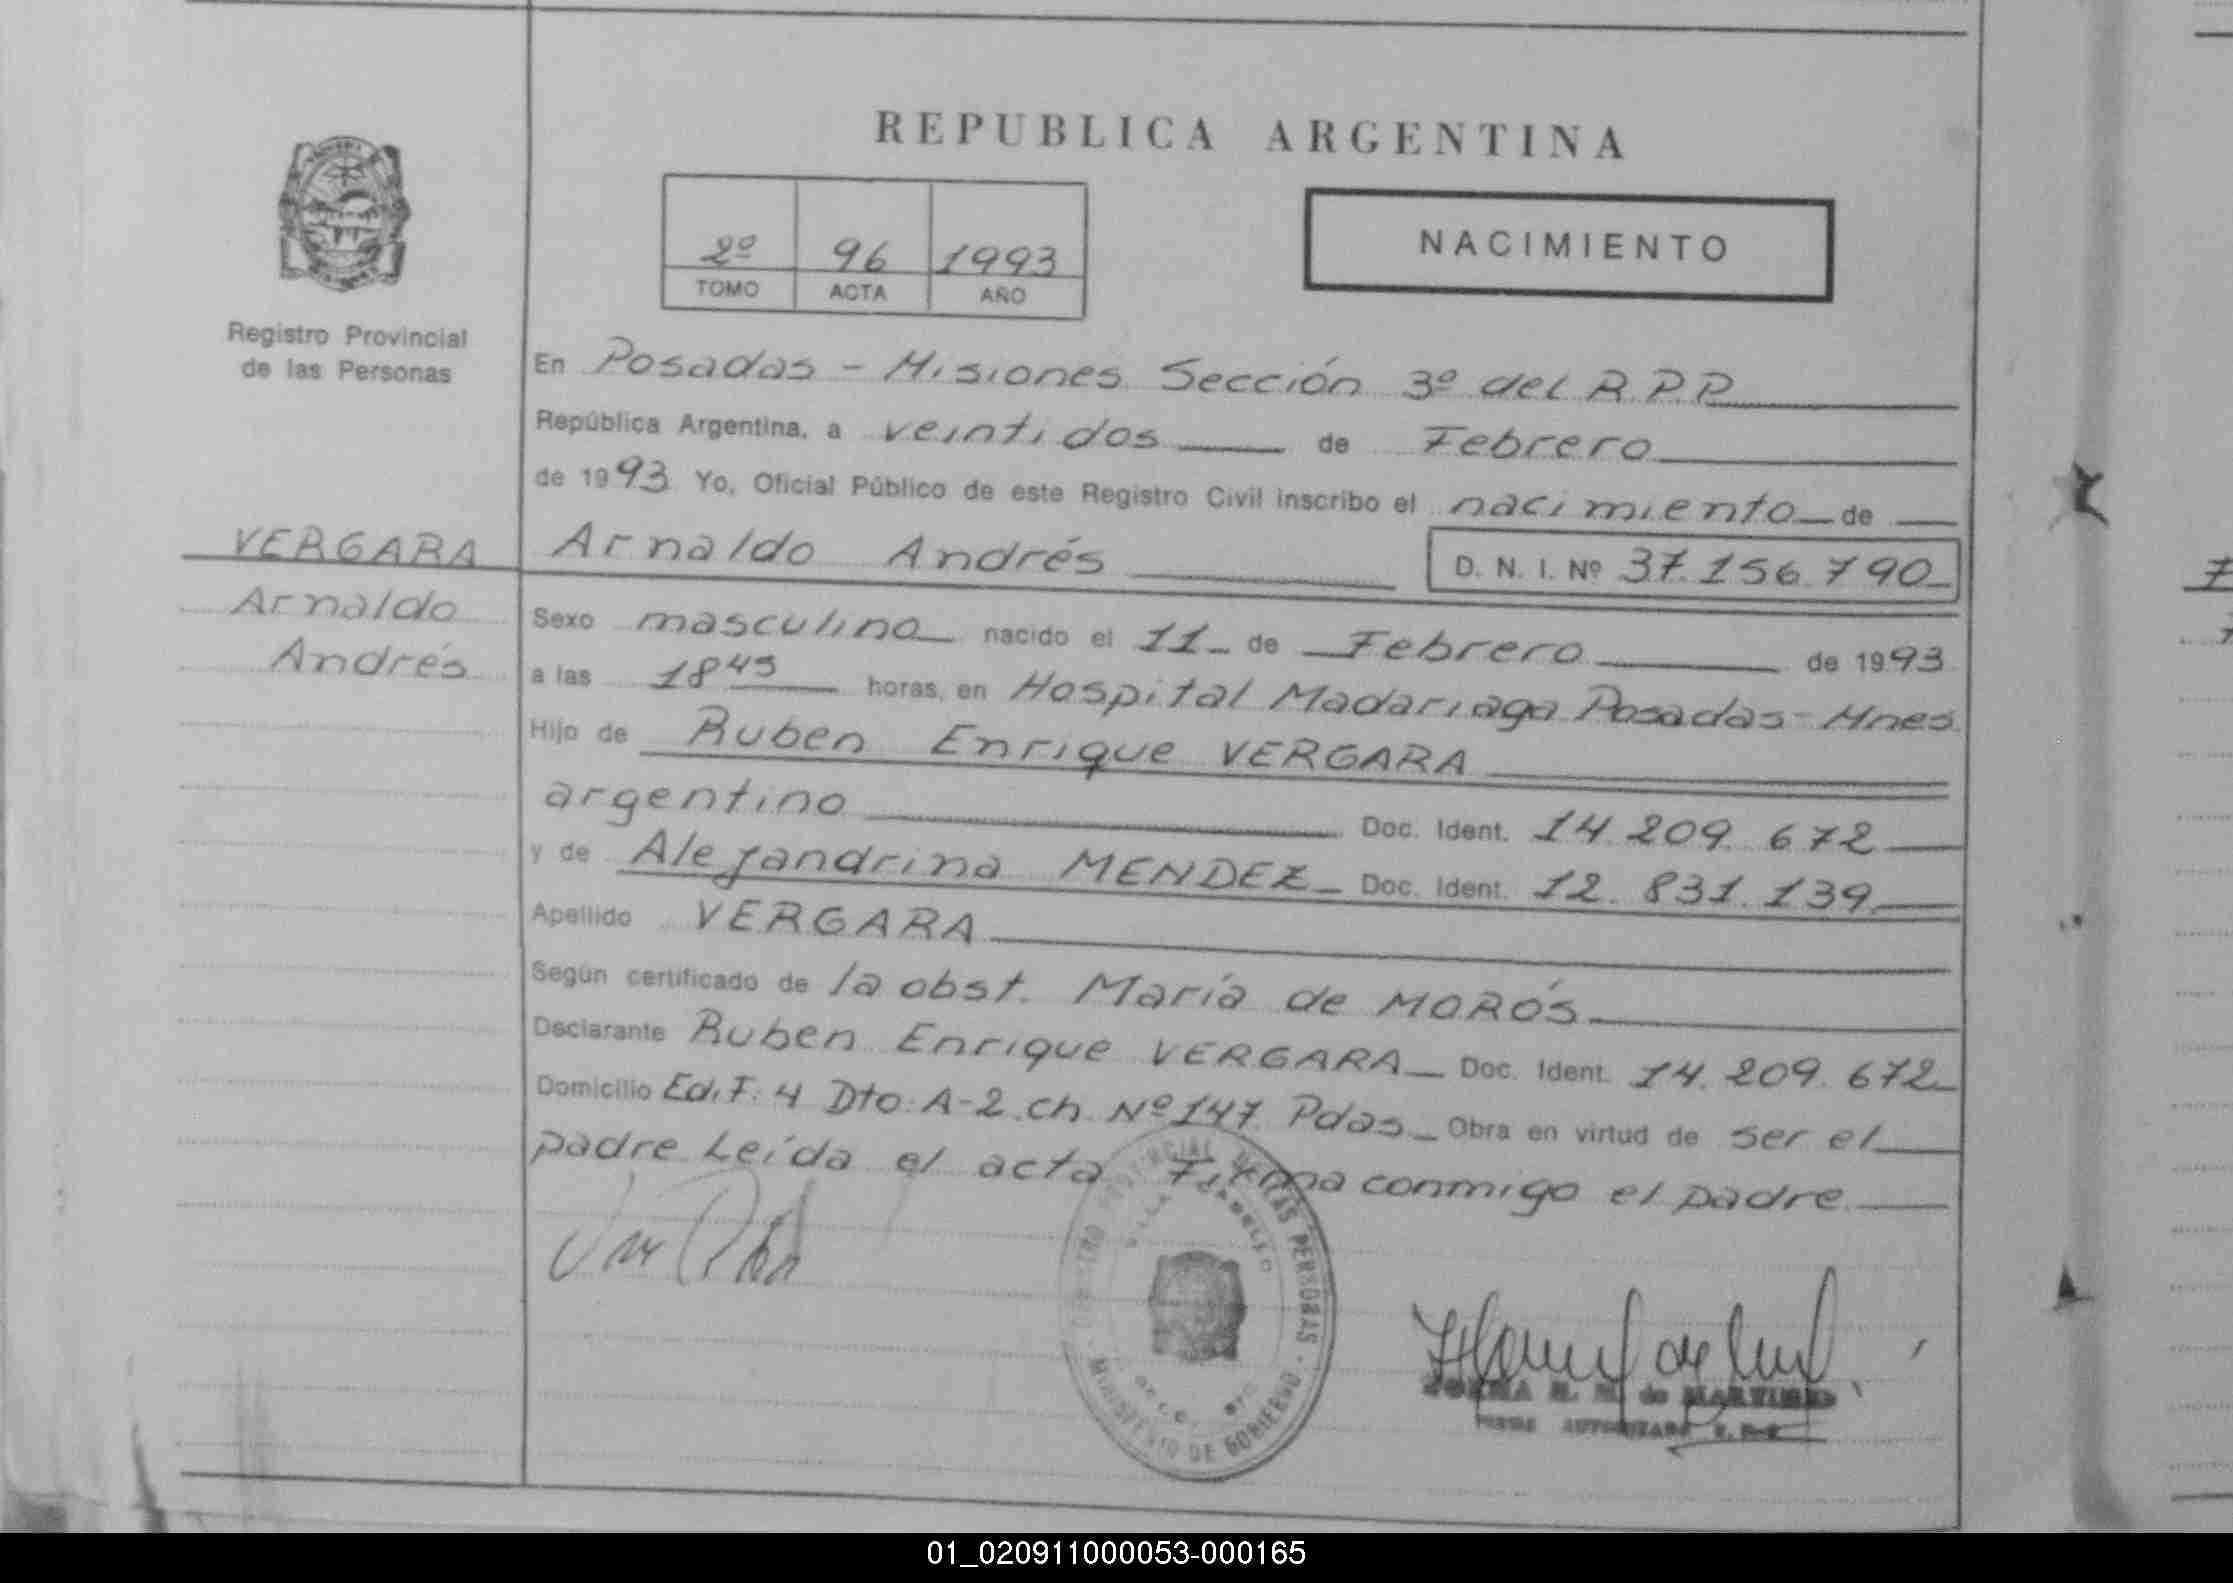 REPUBLICA ARGENTINA
2º 96 1993
TOMO ACTA AÑO
NACIMIENTO
Registro Provincial
de las Personas
VERGARA
Arnaldo
Andrés
En Posadas - Misiones Sección 3º del R.P.P.
República Argentina, a veintidos de Febrero
de 1993 Yo, Oficial Público de este Registro Civil inscribo el nacimiento de
Arnaldo Andrés D. N. I. Nº 37.156.790
Sexo masculino nacido el 11 de Febrero de 1993
a las 18 45 horas, en Hospital Madariaga Posadas - Mnes
Hijo de Ruben Enrique VERGARA
argentino Doc. Ident. 14.209.672
y de Alejandrina MENDEZ Doc. Ident. 12.831.139
Apellido VERGARA
Según certificado de la obst. María de MORÓS
Declarante Ruben Enrique VERGARA Doc. Ident. 14.209.672
Domicilio Edif. 4 Dto. A-2 ch Nº 147 Pdas Obra en virtud de ser el
padre Leída el acta Firma conmigo el padre
REGISTRO PROVINCIAL DE LAS PERSONAS
MINISTERIO DE GOBIERNO
de MARTINEZ
01_020911000053-000165